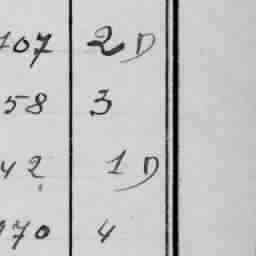 707 2 D
58 3
42 1 D
170 4